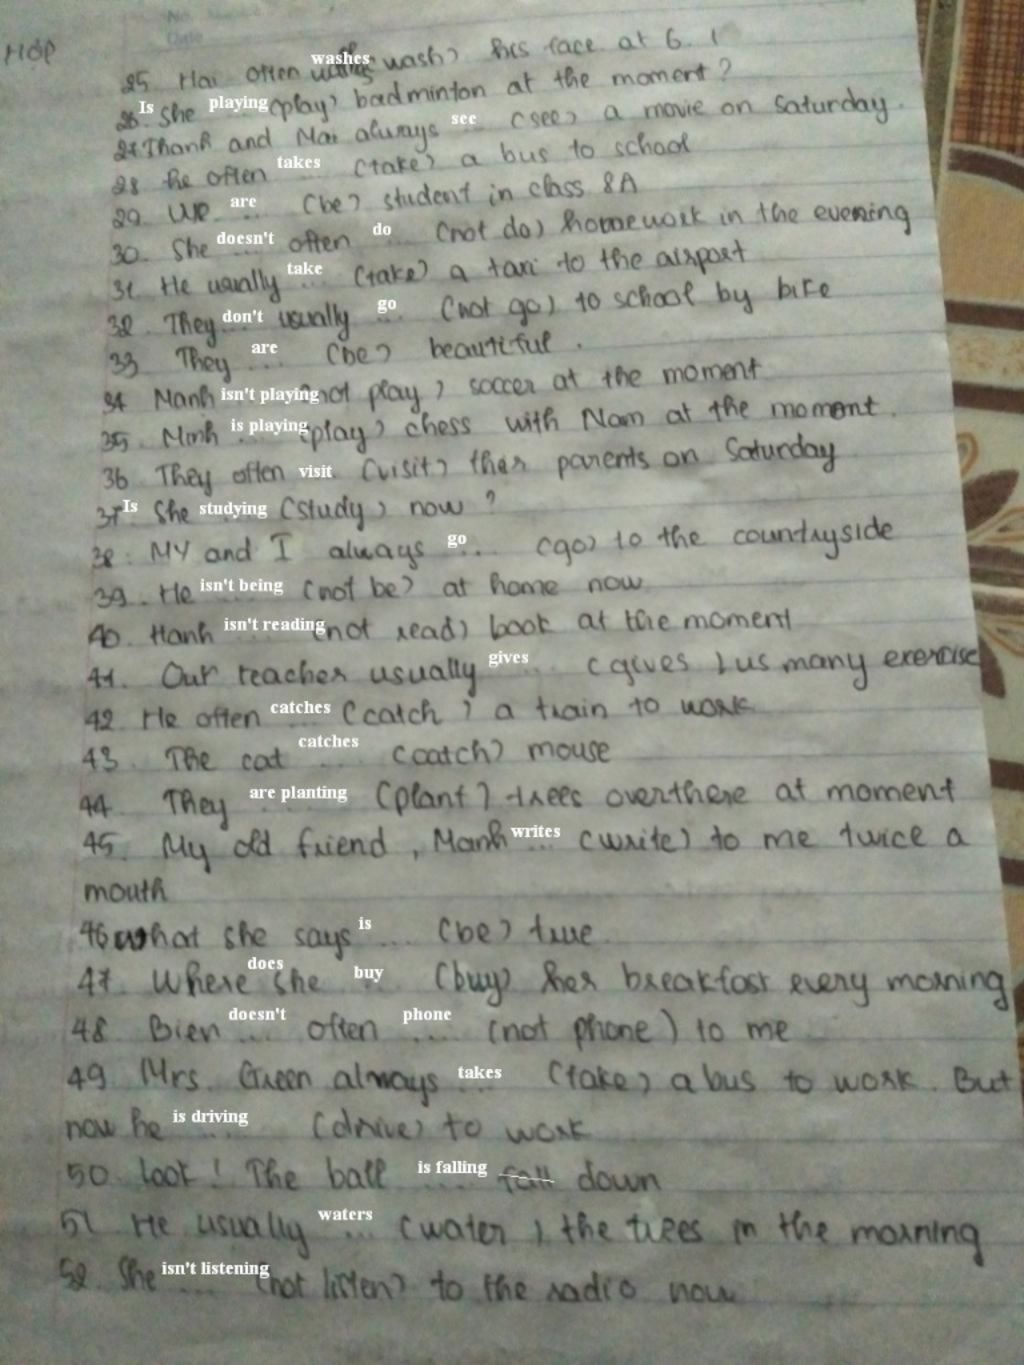 No.
Date
HớP
25. Hai often washes wash) his face at 6.
26. Is she playing (play) badminton at the moment?
27 Thanh and Mai always see (see) a movie on Saturday.
28 he often takes ... (take) a bus to school
29. We are ... (be) student in class 8A
30. She doesn't often do ... (not do) homework in the evening
31. He usually take ... (take) a taxi to the airport
32. They don't usually go ... (not go) to school by bike
33 They are ... (be) beautiful.
34 Nanh isn't playing not play) soccer at the moment
35. Minh is playing ... (play) chess with Nam at the moment.
36 They often visit (visit) ther parents on Saturday
37 Is She studying (study) now?
38. MY and I always go ... (go) to the countryside
39. He isn't being (not be) at home now
40. Hanh isn't reading (not read) book at the moment
41. Our teacher usually gives ... (gives) us many exercise
42. He often catches ... (catch) a train to work
43. The cat catches ... (catch) mouse
44. They are planting ... (plant) trees overthere at moment
45. My old friend, Manh writes ... (write) to me twice a
mouth
46 what she says is ... (be) true
47. Where does she buy ... (buy) her breakfast every morning
48. Bien doesn't ... often phone .... (not phone) to me
49 Mrs. Green always takes ... (take) a bus to work. But
now he is driving ... (drive) to work
50 look! The ball is falling .... fall down
51. He usually waters ... (water) the trees in the morning
52. She isn't listening ... (not listen) to the radio now